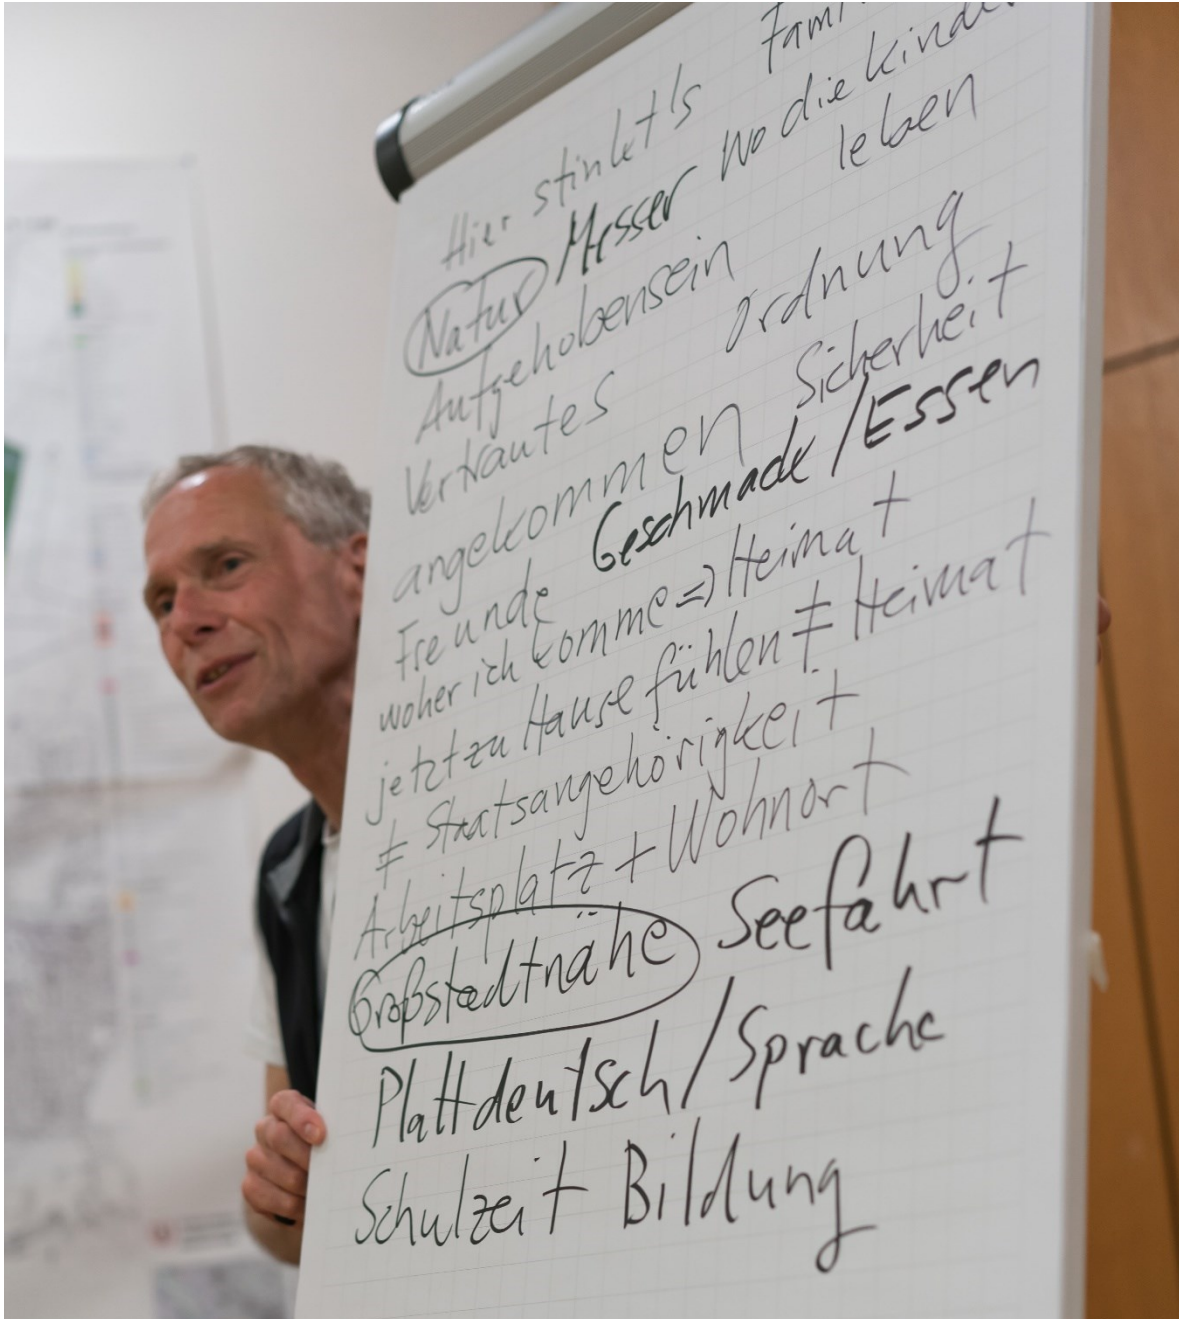 Hier stinkt's Fami
Natur / Messer wo die kinde
leben
Aufgehobensein
Vertrautes Ordnung
angekommen Sicherheit
Freunde Geschmack / Essen
woher ich komme => Heimat
jetzt zu Hause fühlen ≠ Heimat
≠ Staatsangehörigkeit
Arbeitsplatz + Wohnort
Großstadtnähe Seefahrt
Plattdeutsch / Sprache
Schulzeit Bildung